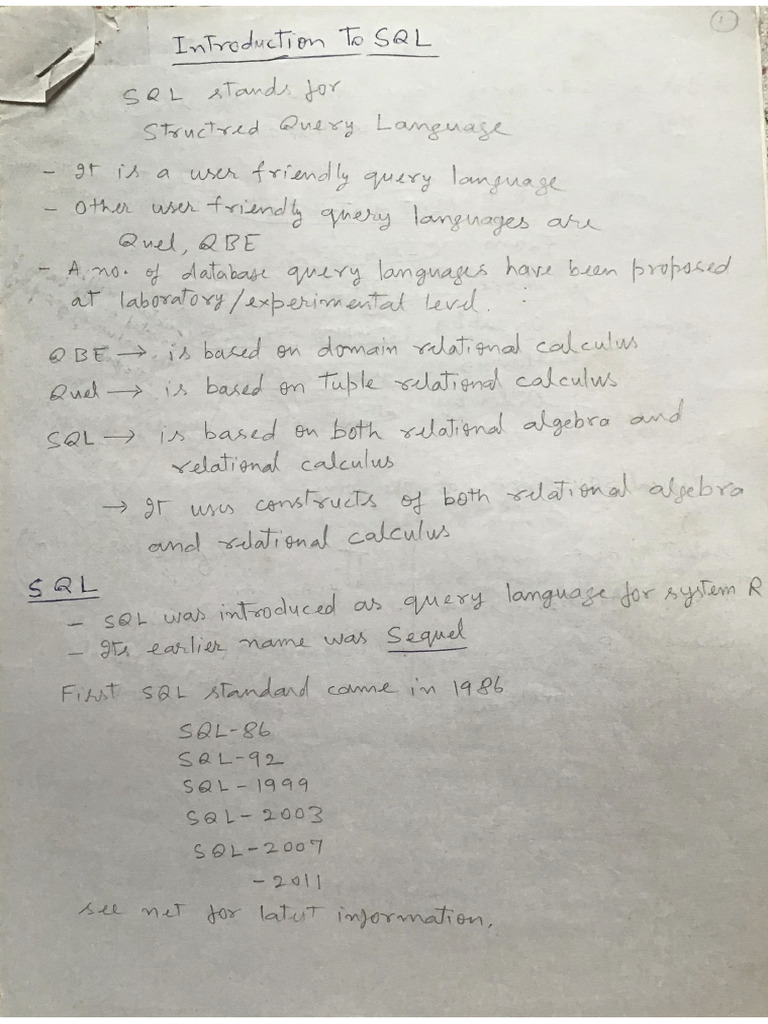 1
Introduction To SQL
SQL stands for
Structred Query Language
- It is a user friendly query language
- Other user friendly query languages are
Quel, QBE
- A no. of database query languages have been proposed
at laboratory/experimental level.
QBE → is based on domain relational calculus
Quel → is based on Tuple relational calculus
SQL → is based on both relational algebra and
relational calculus
→ It uses constructs of both relational algebra
and relational calculus
SQL
- SQL was introduced as query language for system R
- Its earlier name was Sequel
First SQL standard came in 1986
SQL-86
SQL-92
SQL-1999
SQL-2003
SQL-2007
-2011
see net for latest information.